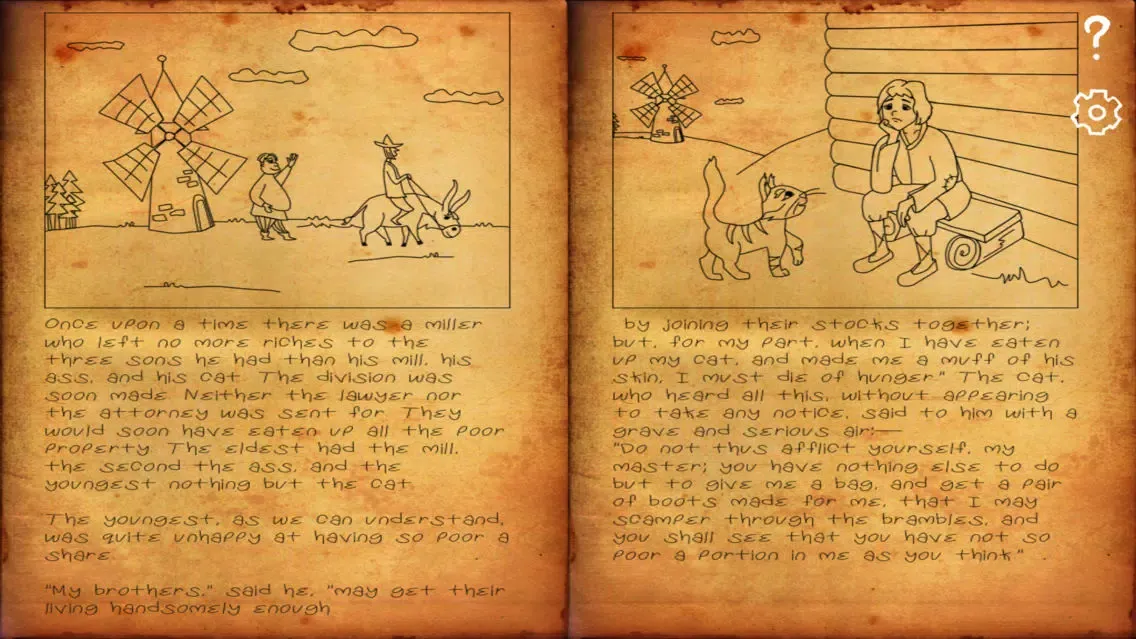 Once upon a time there was a miller
who left no more riches to the
three sons he had than his mill, his
ass, and his cat. The division was
soon made. Neither the lawyer nor
the attorney was sent for. They
would soon have eaten up all the poor
property. The eldest had the mill,
the second the ass, and the
youngest nothing but the cat.
The youngest, as we can understand,
was quite unhappy at having so poor a
share.
"My brothers," said he, "may get their
living handsomely enough
by joining their stocks together;
but, for my part, when I have eaten
up my cat, and made me a muff of his
skin, I must die of hunger." The cat,
who heard all this, without appearing
to take any notice, said to him with a
grave and serious air:—
"Do not thus afflict yourself, my
master; you have nothing else to do
but to give me a bag, and get a pair
of boots made for me, that I may
scamper through the brambles, and
you shall see that you have not so
poor a portion in me as you think."
?